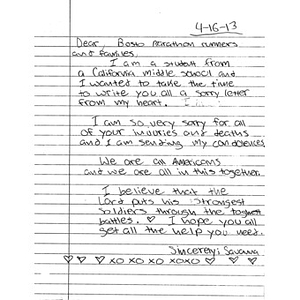 4-16-13
Dear, Bosto marathon runners
and families,
I am a student from
a California middle school and
I wanted to take the time
to write you all a sorry letter
from my heart.
I am so very sorry for all
of your injuries and deaths
and I am sending my condolences
We are all Americans
and we are all in this together.
I believe that the
Lord puts his strongest
soldiers through the toughest
battles. ♡ I hope you all
get all the help you need.
Sincerely: Savanna
♡ ♡ ♡ xo xo xo xoxo ♡ ♡ ♡